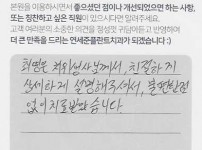 본원을 이용하시면서 좋으셨던 점이나 개선되었으면 하는 사항,
또는 칭찬하고 싶은 직원이 있으시다면 알려주세요.
고객 여러분의 소중한 의견을 정성껏 귀담아듣고 반영하여
더 큰 만족을 드리는 연세준플란트치과가 되겠습니다 :)
최영은 치위생사님께서, 친절하게
상세하게 설명해주셔서, 불편한점
없이 치료 받았습니다